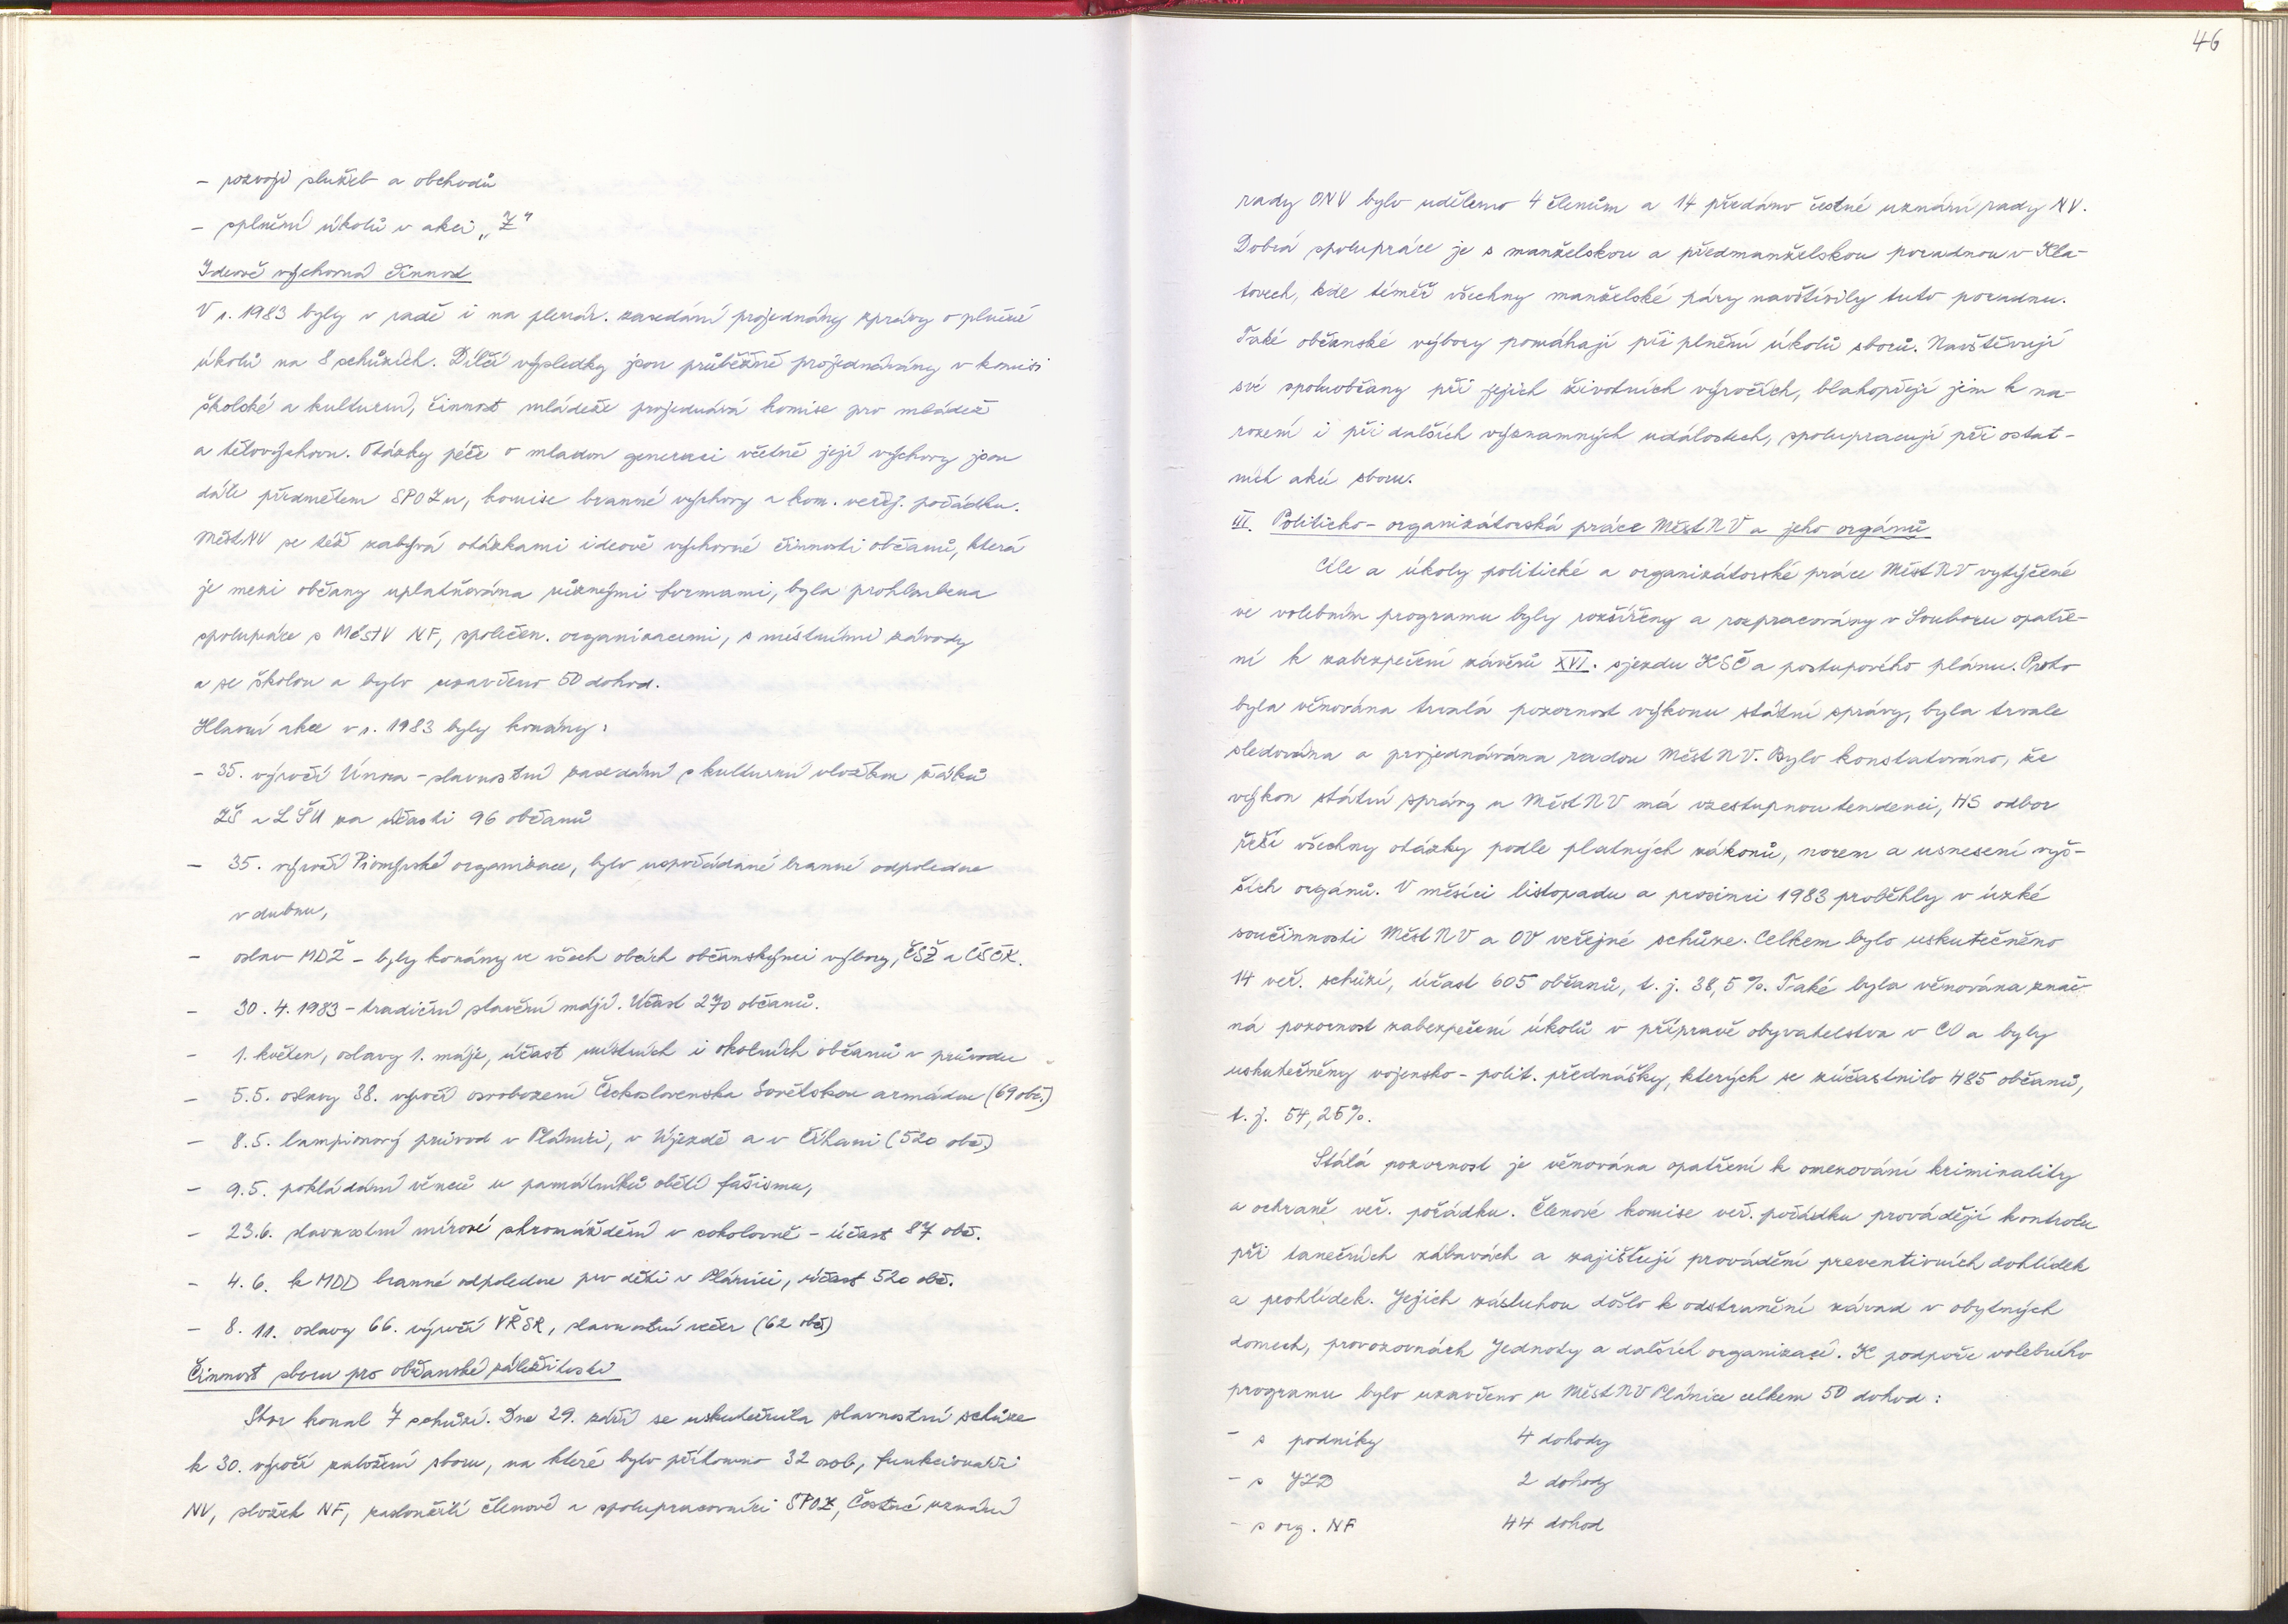 46
- rozvoji služeb a obchodů
- splnění úkolů v akci „Z"
Ideově výchovná činnost
V r. 1983 byly v radě i na plenár. zasedání projednány zprávy o plnění
úkolů na 8 schůzích. Dílčí výsledky jsou průběžně projednávány v komisi
školské a kulturní, činnost mládeže projednává komise pro mládež
a tělovýchovu. Otázky péče o mladou generaci včetně její výchovy jsou
dále předmětem SPOZu, komise branné výchovy a kom. veřej. pořádku.
MěstNV se též zabývá otázkami ideově výchovné činnosti občanů, která
je mezi občany uplatňována různými formami, byla prohloubena
spolupráce s MěstV NF, společen. organizacemi, s místními závody
a se školou a bylo uzavřeno 50 dohod.
Hlavní akce v r. 1983 byly konány:
- 35. výročí Února - slavnostní zasedání s kulturní vložkou žáků
ZŠ a LŠU za účasti 96 občanů
- 35. výročí Pionýrské organizace, bylo uspořádané branné odpoledne
v dubnu,
- oslav MDŽ - byly konány ve všech obcích občanskými výbory, ČSŽ a ČSČK.
- 30. 4. 1983 - tradiční stavění májí. Účast 270 občanů.
- 1. květen, oslavy 1. máje, účast místních i okolních občanů v průvodu
- 5.5. oslavy 38. výročí osvobození Československa Sovětskou armádou (69 obč.)
- 8.5. lampionový průvod v Plánici, v Újezdě a v Číhani (520 obč.)
- 9.5. pokládání věnců u památníků obětí fašismu,
- 23.6. slavnostní mírové shromáždění v sokolovně - účast 87 obč.
- 4. 6. k MDD branné odpoledne pro děti v Plánici, účast 520 obč.
- 8. 11. oslavy 66. výročí VŘSR, slavnostní večer (62 obč)
Činnost sboru pro občanské záležitosti
Sbor konal 7 schůzí. Dne 29. září se uskutečnila slavnostní schůze
k 30. výročí založení sboru, na které bylo přítomno 32 osob, funkcionáři
NV, složek NF, zasloužilí členové a spolupracovníci SPOZ, Čestné uznání
rady ONV bylo uděleno 4 členům a 14 předáno čestné uznání rady NV.
Dobrá spolupráce je s manželskou a předmanželskou poradnou v Kla-
tovech, kde téměř všechny manželské páry navštívily tuto poradnu.
Také občanské výbory pomáhají při plnění úkolů sborů. Navštěvují
své spoluobčany při jejich životních výročích, blahopřejí jim k na-
rození i při dalších významných událostech, spolupracují při ostat-
ních akcí sboru.
III. Politicko-organizátorská práce MěstNV a jeho orgánů
Cíle a úkoly politické a organizátorské práce MěstNV vytýčené
ve volebním programu byly rozšířeny a rozpracovány v Souboru opatře-
ní k zabezpečení závěrů XVI. sjezdu KSČ a postupového plánu. Proto
byla věnována trvalá pozornost výkonu státní správy, byla trvale
sledována a projednávána radou MěstNV. Bylo konstatováno, že
výkon státní správy u MěstNV má vzestupnou tendenci, HS odbor
řeší všechny otázky podle platných zákonů, norem a usnesení vyš-
ších orgánů. V měsíci listopadu a prosinci 1983 proběhly v úzké
součinnosti MěstNV a OV veřejné schůze. Celkem bylo uskutečněno
14 veř. schůzí, účast 605 občanů, t. j. 38,5 %. Také byla věnována znač-
ná pozornost zabezpečení úkolů v přípravě obyvatelstva v CO a byly
uskutečněny vojensko-polit. přednášky, kterých se zúčastnilo 485 občanů,
t. j. 54,25%.
Stálá pozornost je věnována opatření k omezování kriminality
a ochraně veř. pořádku. Členové komise veř. pořádku provádějí kontrolu
při tanečních zábavách a zajišťují provádění preventivních dohlídek
a prohlídek. Jejich zásluhou došlo k odstranění závad v obytných
domech, provozovnách Jednoty a dalších organizací. K podpoře volebního
programu bylo uzavřeno u MěstNV Plánice celkem 50 dohod:
- s podniky 4 dohody
- s JZD 2 dohody
- s org. NF 44 dohod